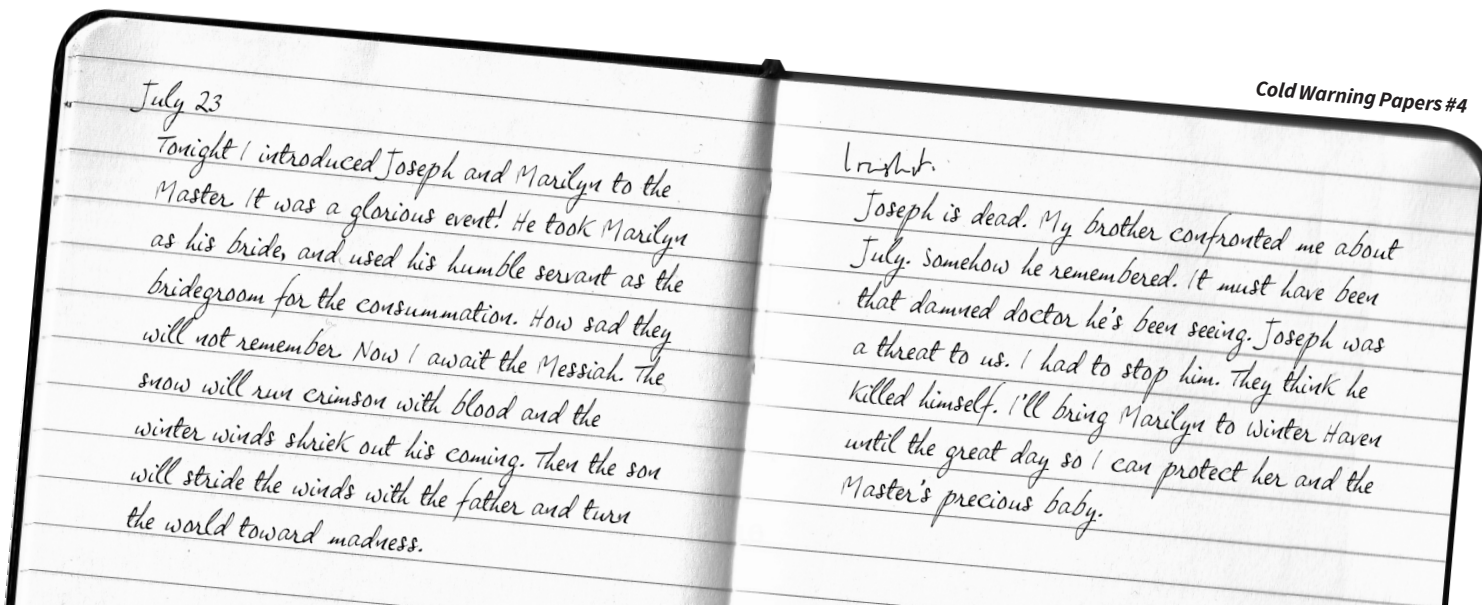 Cold Warning Papers #4
July 23
Tonight I introduced Joseph and Marilyn to the
Master. It was a glorious event! He took Marilyn
as his bride, and used his humble servant as the
bridegroom for the consummation. How sad they
will not remember. Now I await the Messiah. The
snow will run crimson with blood and the
winter winds shriek out his coming. Then the son
will stride the winds with the father and turn
the world toward madness.
Joseph is dead. My brother confronted me about
July. Somehow he remembered. It must have been
that damned doctor he's been seeing. Joseph was
a threat to us. I had to stop him. They think he
killed himself. I'll bring Marilyn to Winter Haven
until the great day so I can protect her and the
Master's precious baby.